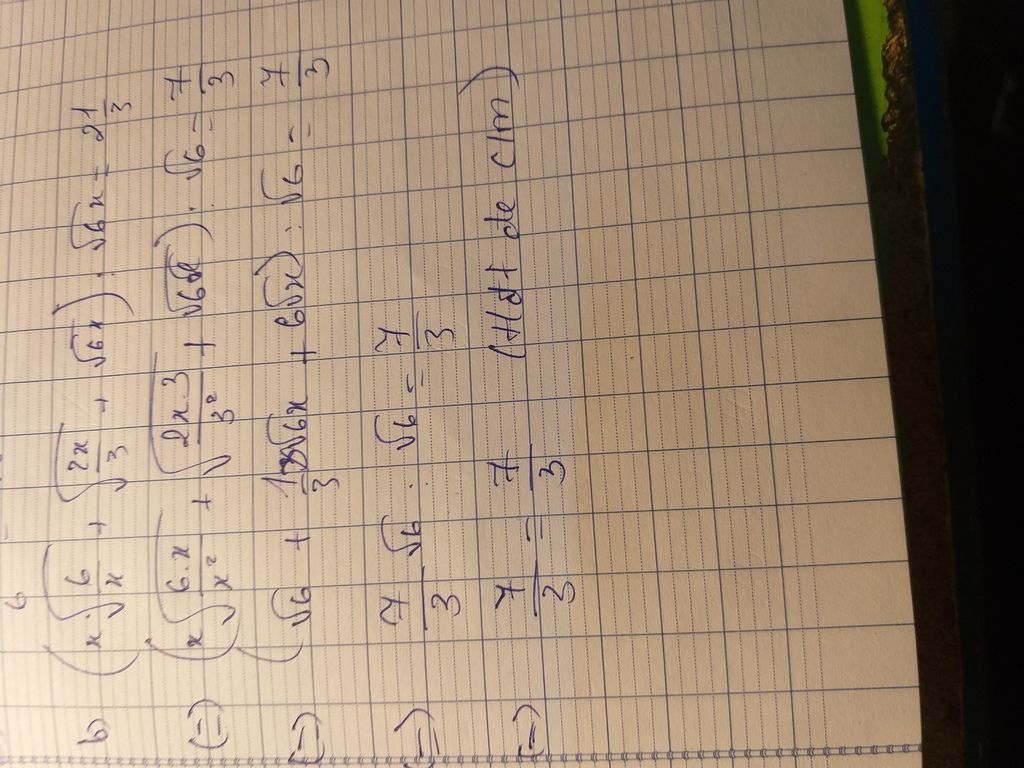 b) (x·√6/x + √2x/3 + √6x) : √6x = 2 1/3
(=) (x√6·x/x² + √2x·3/3² + √6x) : √6 = 7/3
(=) (√6 + 1/3√6x + 6√x) : √6 = 7/3
(=) 7/3 √6 : √6 = 7/3
(=) 7/3 = 7/3 (Hdt de c/m)